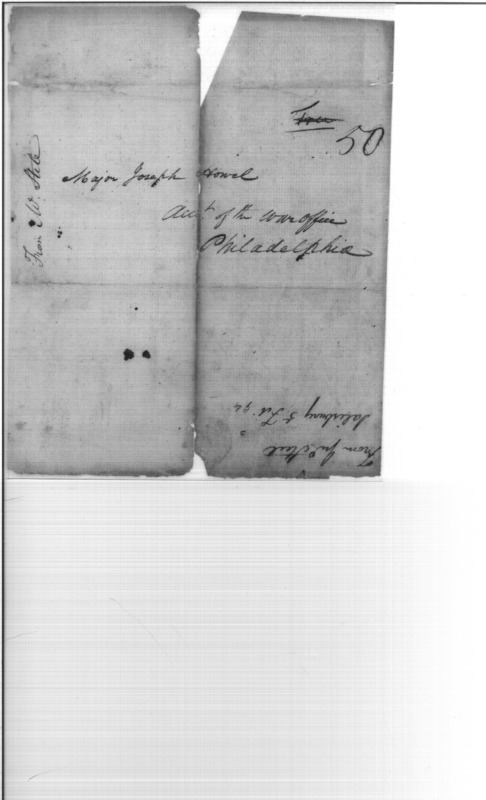 Free
50
Major Joseph Howel
Acct. of the war office
Philadelphia
From W. Stele
From Jn. Steel
Salisbury 5 Feb. 94